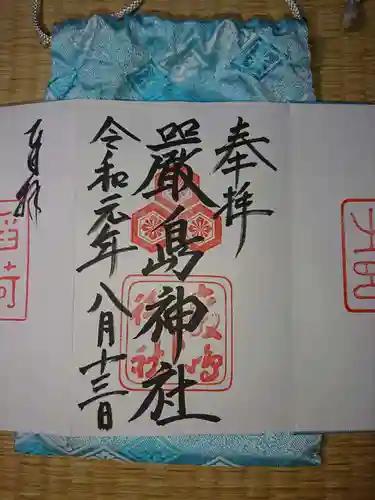 奉拝
嚴島神社
令和元年八月十三日
嚴島
神社